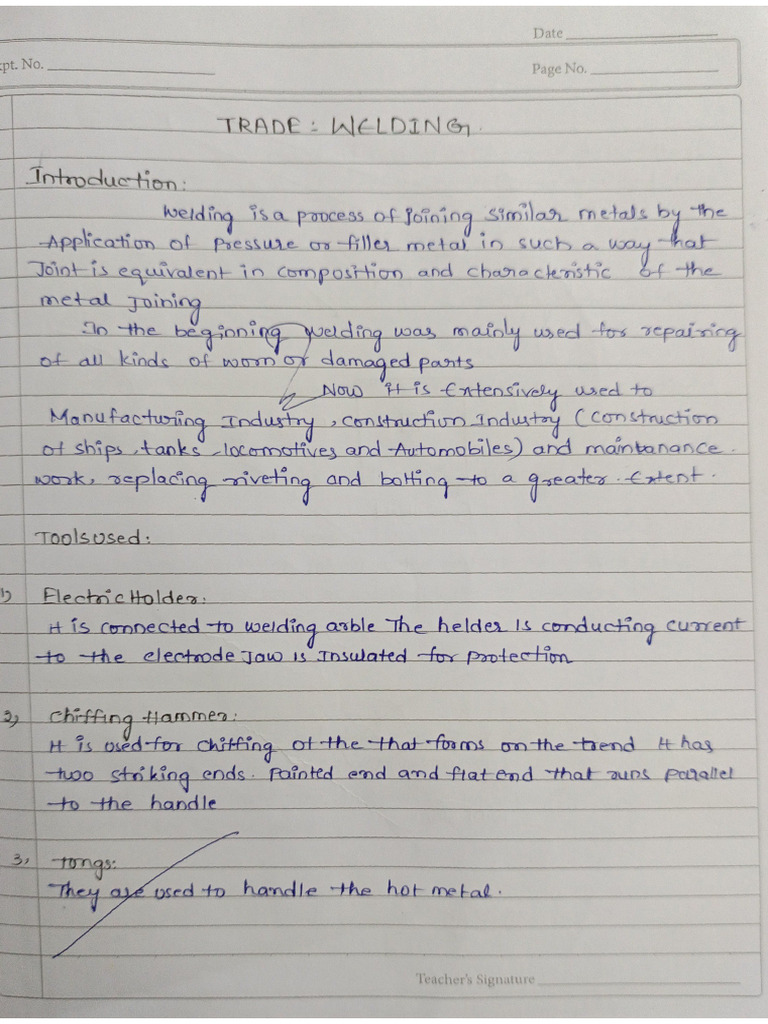 Date
xpt. No.
Page No.
TRADE: WELDING.
Introduction:
Welding is a process of Joining similar metals by the
Application of pressure or filler metal in such a way that
Joint is equivalent in composition and characteristic of the
metal Joining
In the beginning welding was mainly used for repairing
of all kinds of worn or damaged parts
Now it is Extensively used to
Manufacturing Industry, construction Industry (construction
of ships, tanks, locomotives and Automobiles) and maintanance.
work, replacing riveting and bolting to a greater. Extent.
Tools used:
1) Electric Holder:
It is connected to welding arble The helder Is conducting current
to the electrode Jaw is Insulated for protection
2) Chiffing Hammer:
It is used for chiffing of the that forms on the trend It has
two striking ends. Painted end and flat end that runs parallel
to the handle
3, Tongs:
They are used to handle the hot metal.
Teacher's Signature